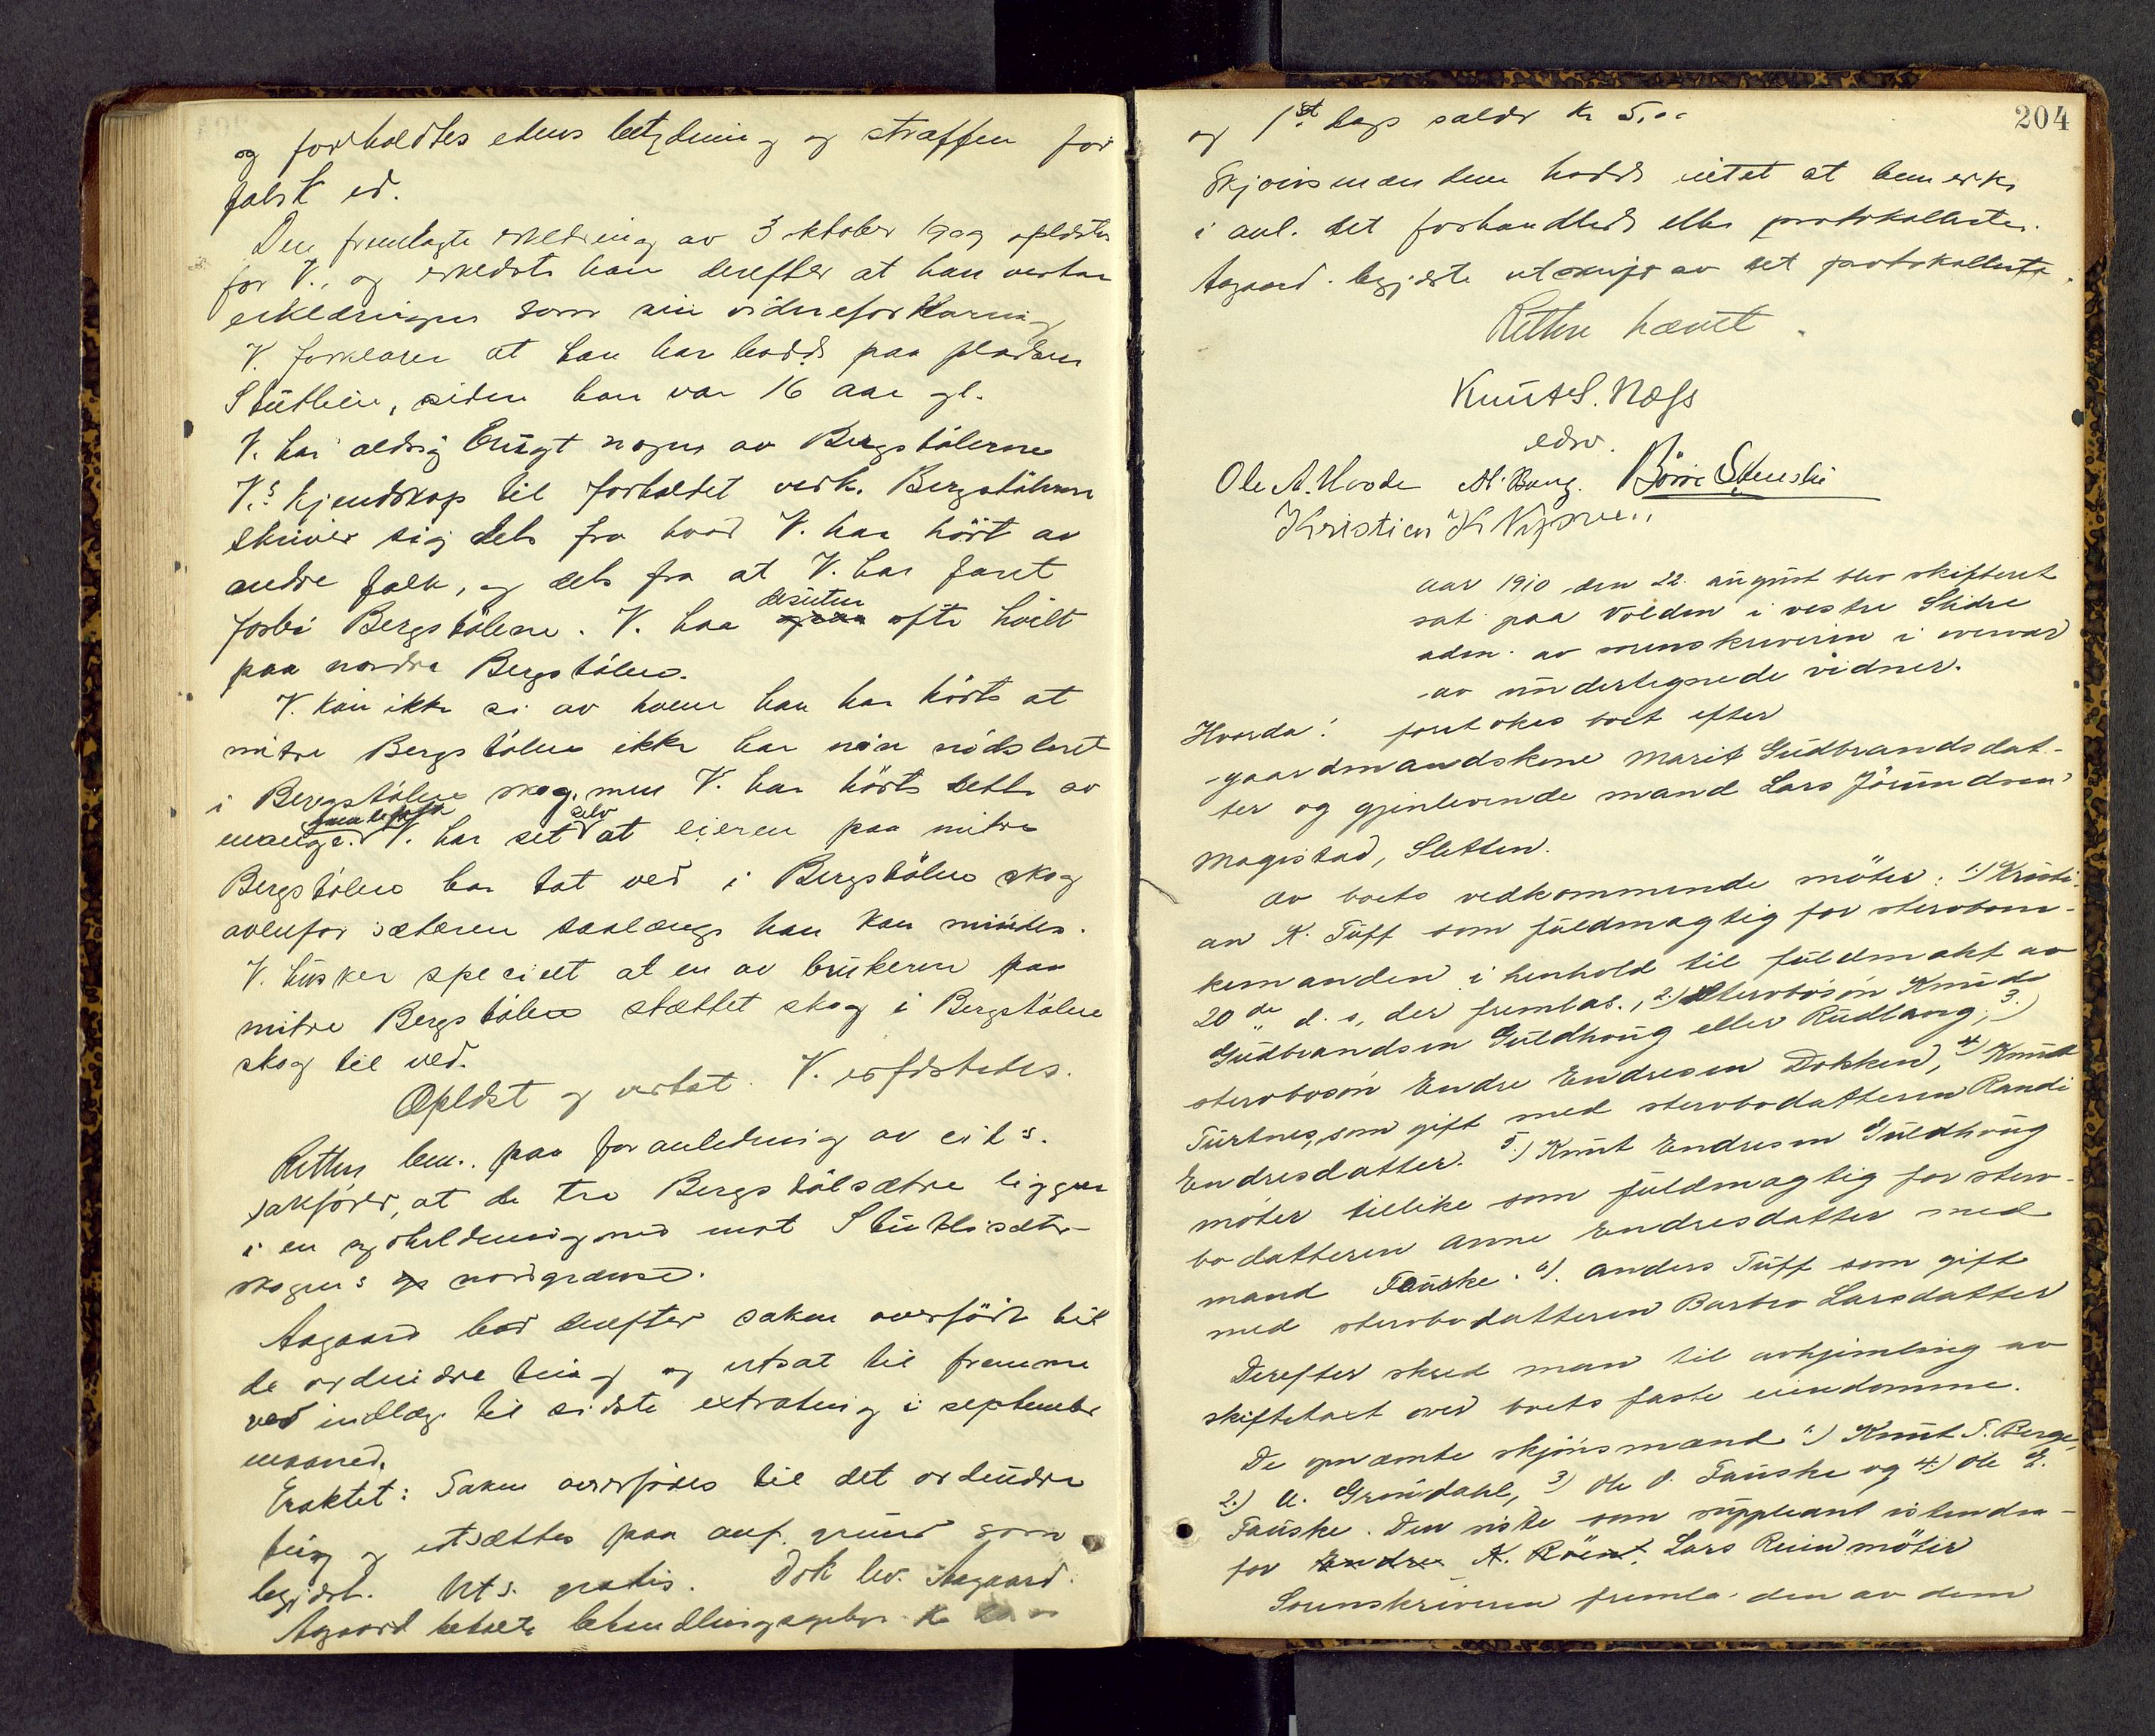 og forholdtes edens betydning og straffen for
falsk ed.
Den fremlagte erklæring av 3 oktober 1909 oplæstes
for V., og erklærte han derefter at han vedtar
erklæringen som sin vidneforklaring
V. forklarer at han har bodd paa pladsen
siden han var 16 aar gl.
V. har aldrig brugt nogen av Bergstølerne
V.s kjendskap til forholdet vedk. Bergstølerne
skriver sig dels fra hvad V. har hørt av
andre folk, og dels fra at V. har faret
forbi Bergstølene. V. har desuten ofte hvilt
paa nordre Bergstølen.
V. kan ikke si av hvem han har hørt at
mitre Bergstølen ikke har
i Bergstølen skog, men V. har hørt dette av
mange. V. har set selv at eieren paa mitre
Bergstølen har tat ved i Bergstølens skog
ovenfor sæteren saalænge han kan mindes.
V. husker specielt at en av brukerne paa
mitre Bergstølen skog i Bergstølens
skog til ved.
Oplæst og vedtat. V.
Retten bem. paa foranledning av cit.s
sakfører, at de tre Bergstølsætre ligger
i en ned mot
skogens nordgrænse.
Aagaard bad derefter saken overført til
de ordinære ting og utsat til fremme
ved indlæg til sidste extrating i september
maaned.
Eraktet: Saken overføres til det ordinære
ting og utsættes paa anf. grund som
begjært. Uts. gratis. Dok lev. Aagaard.
Agaard betalte behandlingsgebyr kr
204
og 1st dags kr 5,00
Skjønsmændene hadde intet at bemerke
i anl. det forhandlede eller protokollerte.
Aagaard begjærte utskrift av det protokollerte.
Retten hævet.
Knut S. Næss
edsv.
Ole A. M. Bang. Børre
Kristian K
Aar 1910 den 22. august blev skifteret
sat paa Volden i vestre Slidre
adm. av sorenskriveren i overvær
av undertegnede vidner.
Hvorda: foretokes boet efter
gaardmandskone Marit Gudbrandsdat-
ter og gjenlevende mand Lars Jörundsen
Magistad, Sletten.
Av boets vedkommende möter: 1.) Kristi-
an K. Tuff som fuldmægtig for stervbom-
kemanden i henhold til fuldmakt av
20de d. s, der fremlas., 2.) Stervbosön Knud
Gudbrandsen Guldhoug eller Rudlang, 3.)
stervbosön Endre Endresen Dokken, 4.) Knut
som gift med stervbodatteren Randi
Endresdatter. 5.) Knut Endresen Guldhoug
möter tillike som fuldmægtig for sterv-
bodatteren Anne Endresdatter med
mand Fauske. 6.) Anders Tuff som gift
med stervbodatteren Barbro Larsdatter
Derefter skred man til avhjemling av
skiftetaxt over boets faste eiendomme.
De opnævnte skjönsmænd 1.) Knut T. Berge,
2.) A. Gröndahl, 3) Ole O. Fauske og 4.) Ole E.
Fauske. Den sidste som suppleant istenden-
for Endre K. Röen. Lars Reien möter
Sorenskriveren fremla den av dem